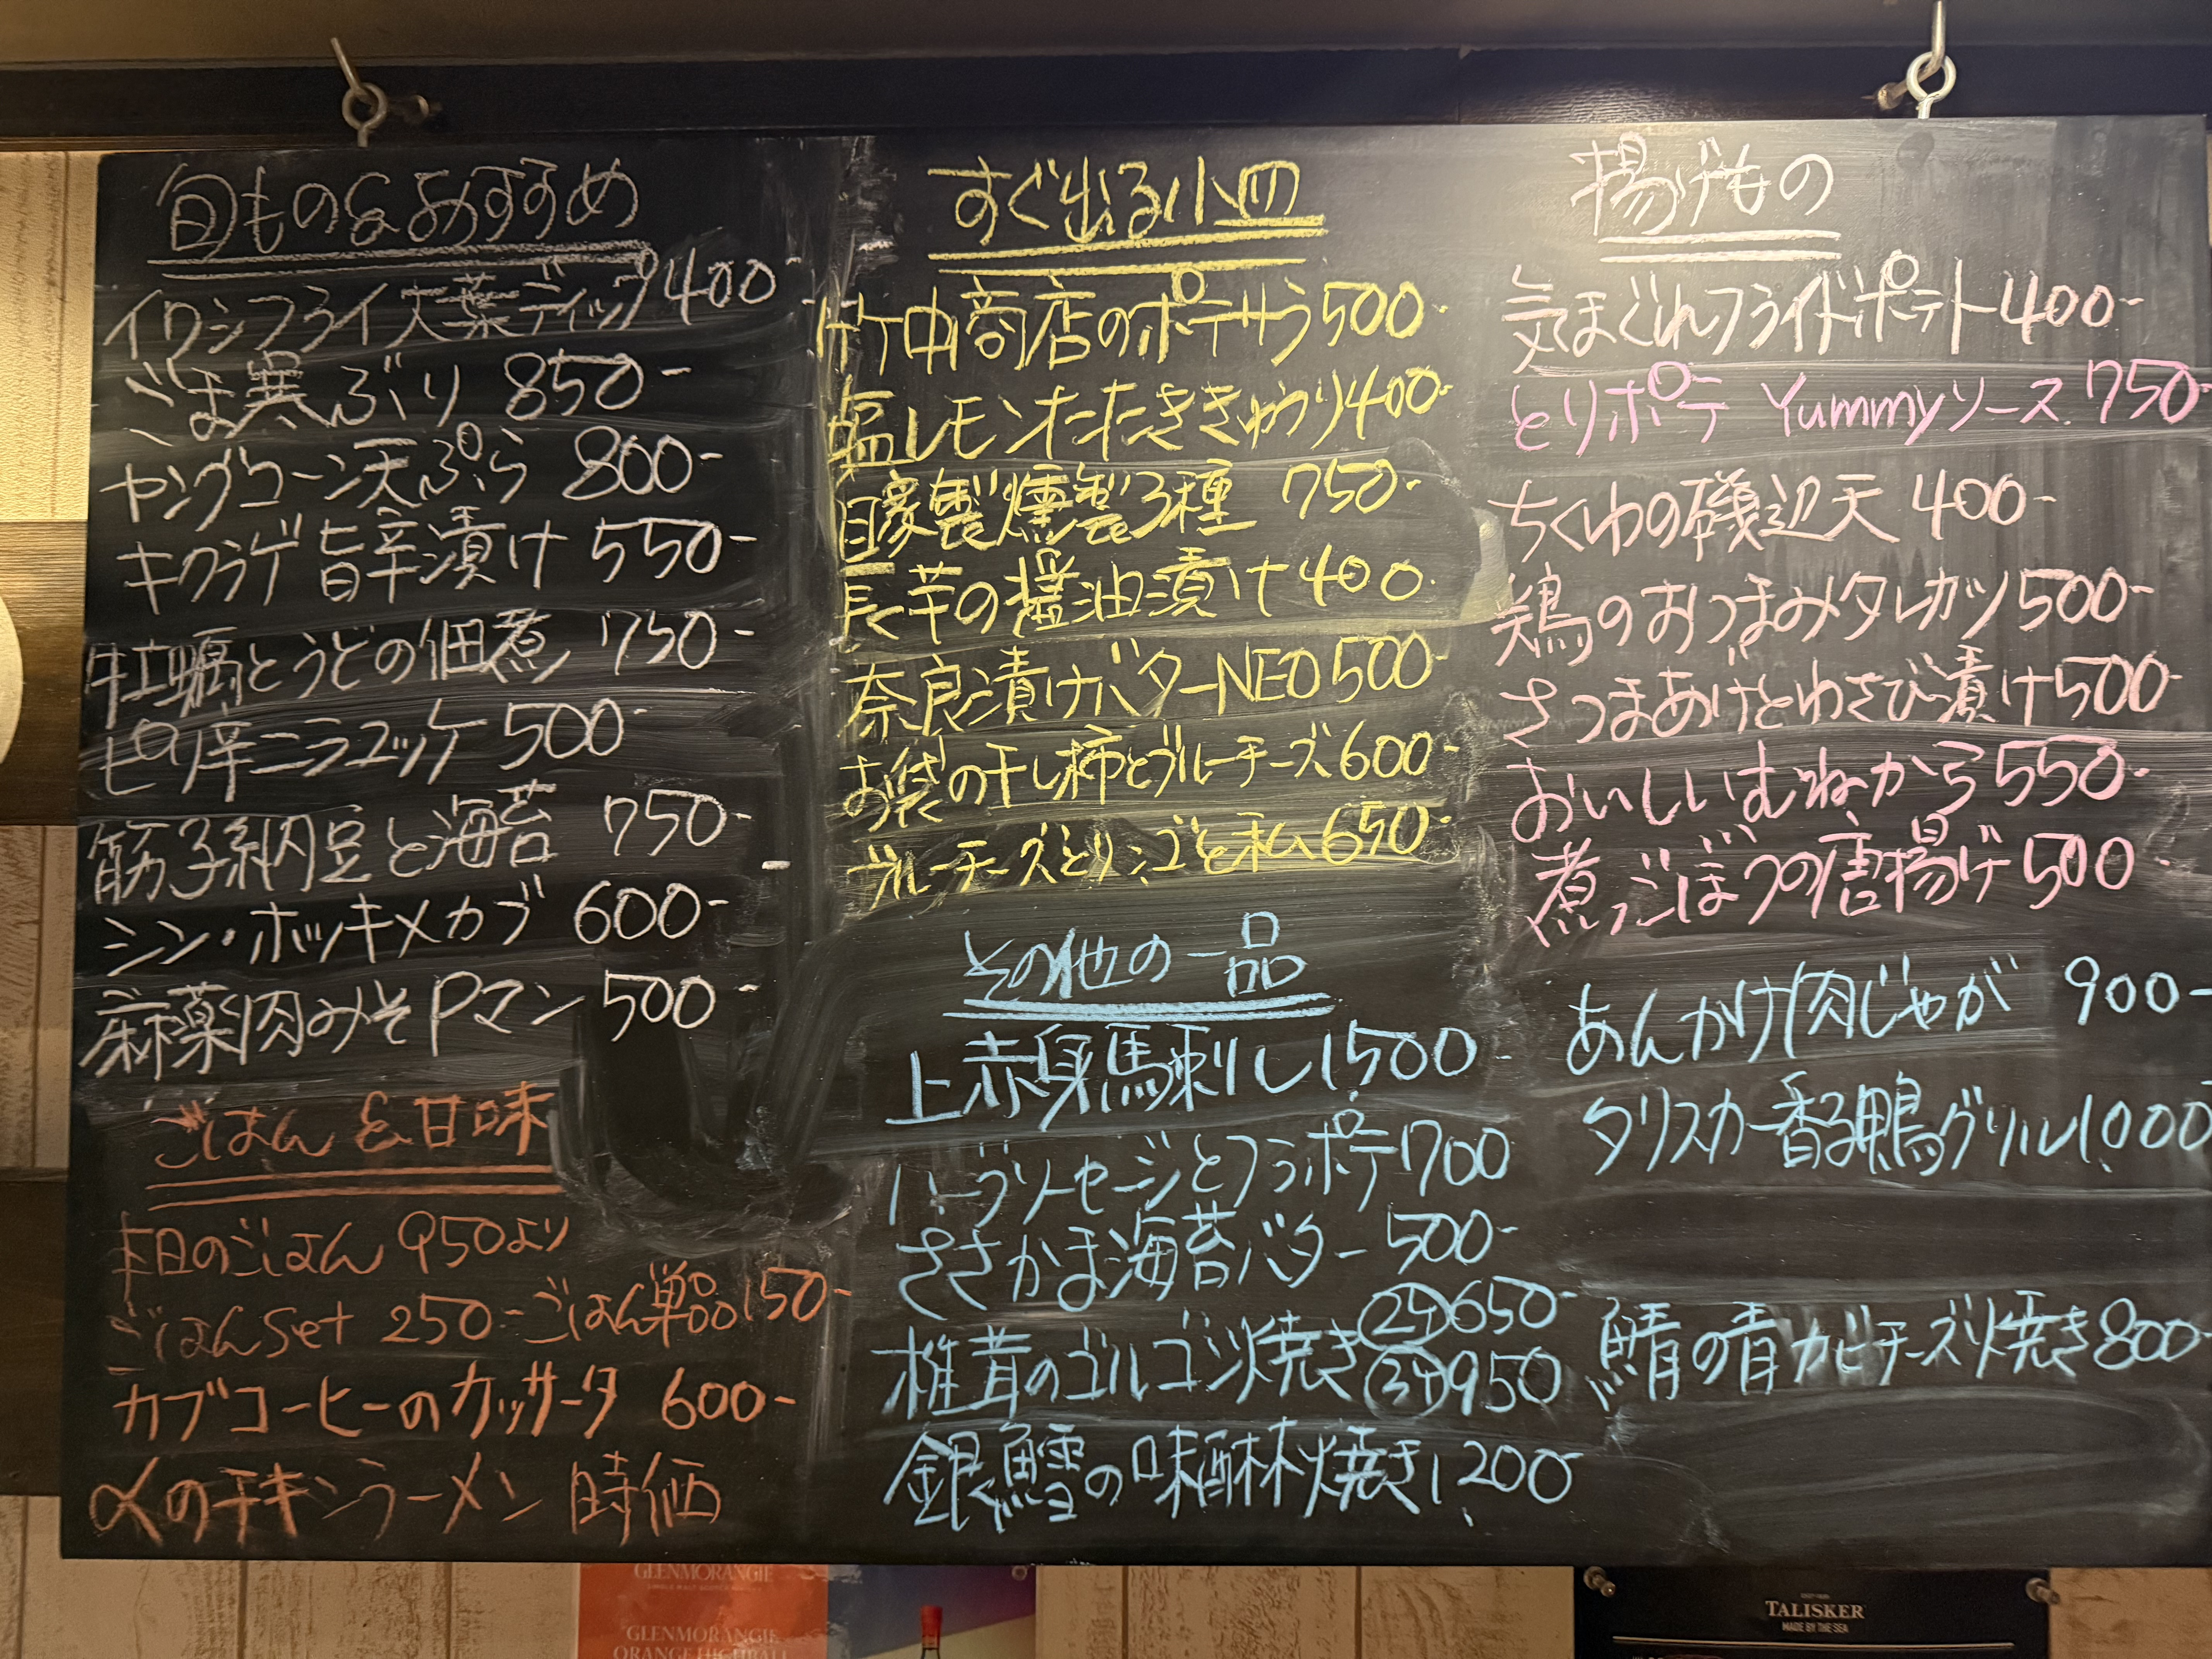 旬もの&おすすめ
イワシフライ大葉ディップ 400-
ごま寒ぶり 850-
ヤングコーン天ぷら 800-
キクラゲ旨辛漬け 550-
牡蠣とうどの佃煮 750-
ピリ辛ニラユッケ 500-
筋子納豆と海苔 750-
シン・ホッキメカブ 600-
麻薬肉みそPマン 500-
ごはん&甘味
本日のごはん 950より
ごはんSet 250- ごはん単品150-
カブコーヒーのカッサータ 600-
〆のチキンラーメン 時価
すぐ出る小皿
竹中商店のポテサラ 500-
塩レモンたたききゅうり 400-
自家製燻製3種 750-
長芋の醤油漬け 400-
奈良漬けバターNEO 500-
お袋の干し柿とブルーチーズ 600-
ブルーチーズとリンゴと私 650-
その他の一品
上赤身馬刺し 1,500-
ハーブソーセージとフラポテ 1700
ささかま海苔バター 500-
椎茸のゴルゴンゾ焼き (2ヶ)650-
(3ヶ)950
銀鱈の味醂焼き 1,200-
揚げもの
気まぐれフライドポテト 400-
とりポテ Yummyソース 750-
ちくわの磯辺天 400-
鶏のおつまみタレカツ 500-
さつまあげとわさび漬け 500-
おいしいむねから 550-
煮ごぼうの唐揚げ 500-
あんかけ肉じゃが 900-
タリスカー香る鴨グリル 1,000
鯖の青カビチーズ焼き 800-
GLENMORANGIE
SINGLE MALT SCOTCH WHISKY
GLENMORANGIE
ORANGE HIGHBALL
TALISKER
MADE BY THE SEA